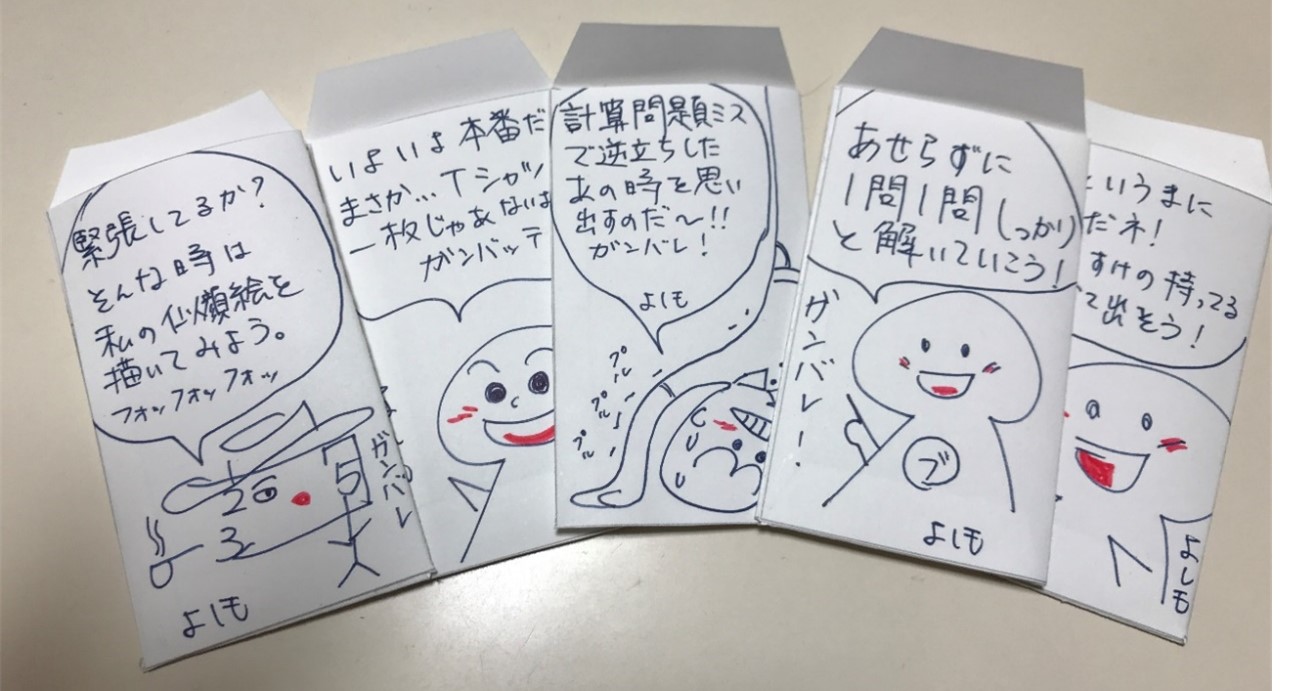 緊張してるか?
そんな時は
私の似顔絵を
描いてみよう。
フォッフォッフォッ
ガンバレ
よしも
いよいよ本番だ
まさか…Tシャツ
一枚じゃあないよ
ガンバッテ
計算問題ミス
で逆立ちした
あの時を思い
出すのだ〜!!
ガンバレ!
よしも
プル
プル
プル
あせらずに
1問1問しっかり
と解いていこう!
ガンバレー!
ブ
よしも
いうまに
だネ!
すけの持ってる
て出そう!
よしも